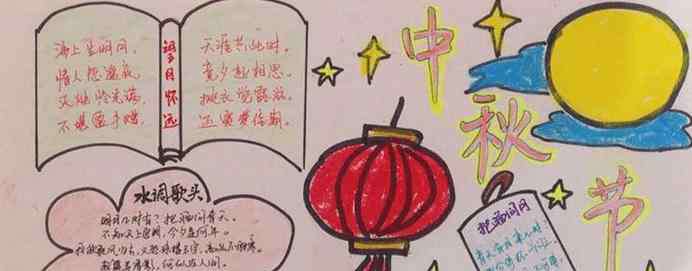 海上生明月,
情人怨遥夜,
灭烛怜光满,
不堪盈手赠,
望月怀远
天涯共此时。
竟夕起相思。
披衣觉露滋。
还寝梦佳期。
中秋节
水调歌头
明月几时有?把酒问青天。
不知天上宫阙,今夕是何年。
我欲乘风归去,又恐琼楼玉宇,高处不胜寒。
起舞弄清影,何似在人间。
把酒问月